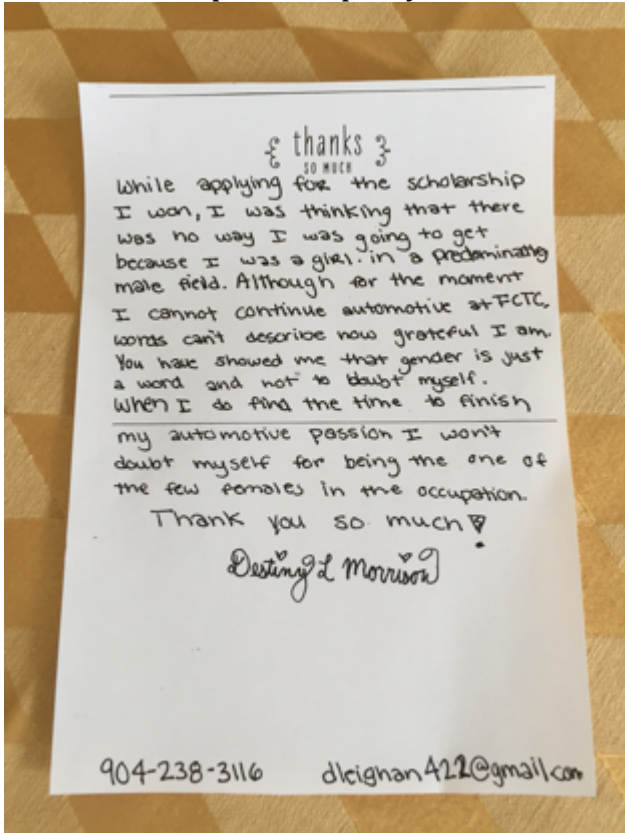 { thanks }
SO MUCH
While applying for the scholarship
I won, I was thinking that there
was no way I was going to get
because I was a girl. in a predominately
male field. Although for the moment
I cannot continue automotive at FCTC,
words can't describe how grateful I am.
You have showed me that gender is just
a word and not to doubt myself.
When I do find the time to finish
my automotive passion I won't
doubt myself for being the one of
the few females in the occupation.
Thank you so much!
Destiny L Morrison
904-238-3116 dleighan422@gmail.com